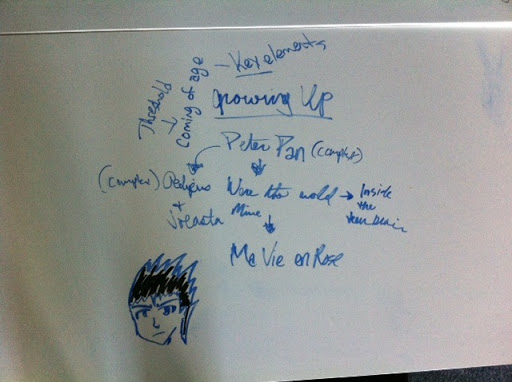 - Key elements
Threshold
Coming of age
Growing Up
Peter Pan (complex)
(complex) Oedipus
+
Jocasta
Were the world
Mine
Inside
the
teen brain
Ma Vie en Rose